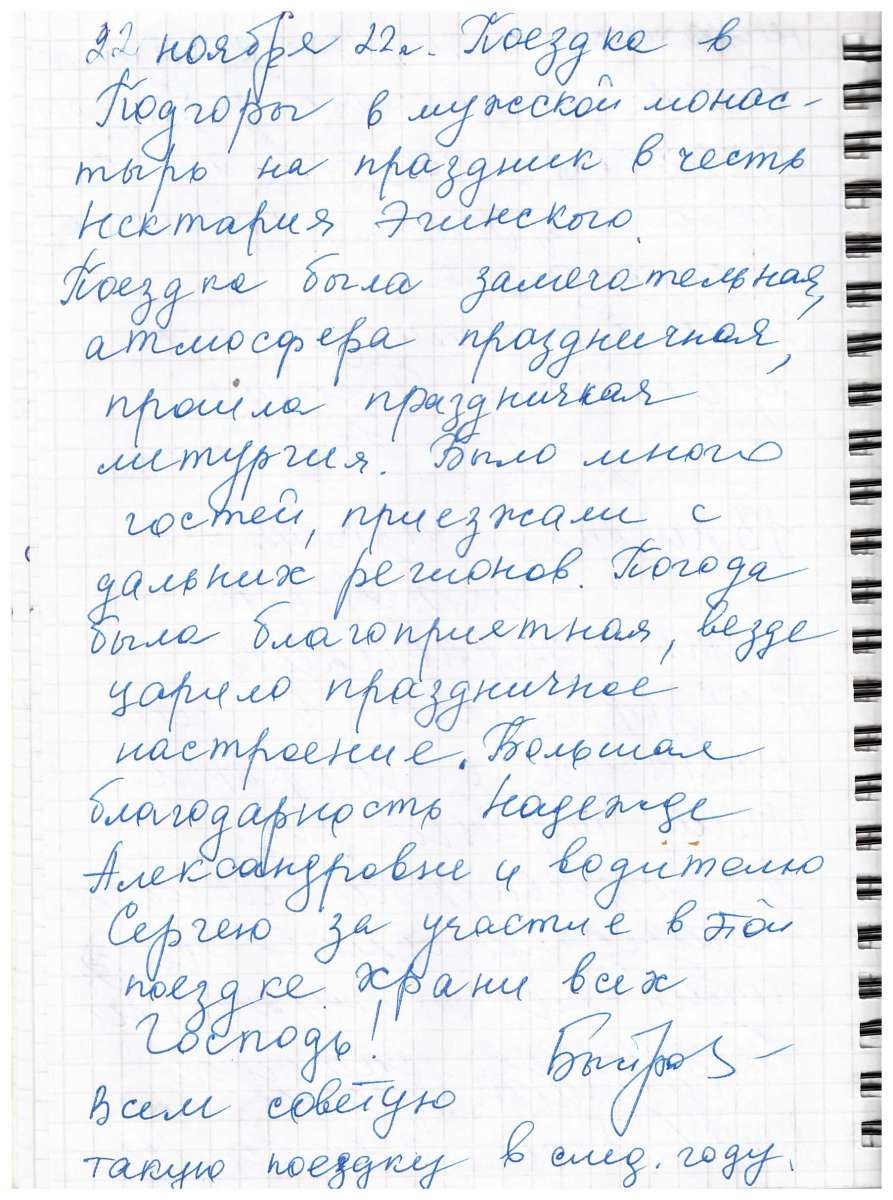 22 ноября 22г. Поездка в
Подгоры в мужской монас-
тырь на праздник в честь
Нектария Эгинского.
Поездка была замечательная,
атмосфера праздничная,
прошла праздничная
литургия. Было много
гостей, приезжали с
дальних регионов. Погода
была благоприятная, везде
царило праздничное
настроение. Большая
благодарность Надежде
Александровне и водителю
Сергею за участие в этой
поездке Храни всех
Господь!
Всем советую
такую поездку в след. году.